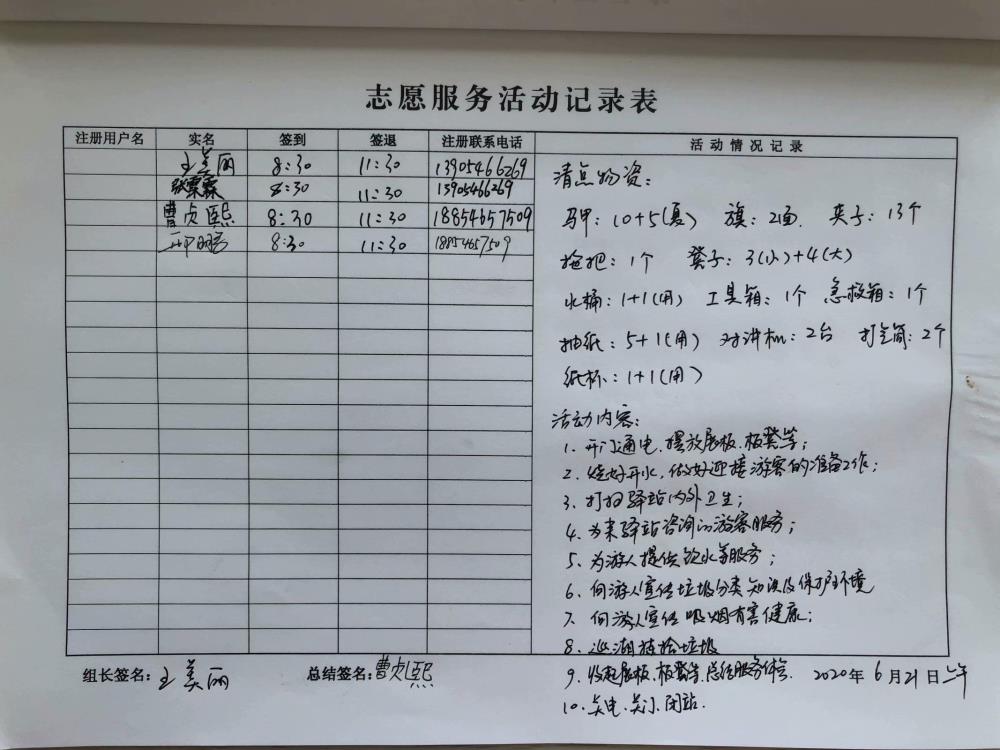 志愿服务活动记录表
注册用户名 实名 签到 签退 注册联系电话 活动情况记录
王美丽 8:30 11:30 13905466269
张霖霖 8:30 11:30 13905466269
曹贞熙 8:30 11:30 18854657509
8:30 11:30 18854657509
清点物资:
马甲: 10+5(夏) 旗: 2面. 夹子: 13个
拖把: 1个 凳子: 3(小)+4(大)
水桶: 1+1(用) 工具箱: 1个 急救箱: 1个
抽纸: 5+1(用) 对讲机: 2台 打气筒: 2个
纸杯: 1+1(用)
活动内容:
1. 开门通电、摆放展板、板凳等;
2. 烧好开水,做好迎接游客的准备工作;
3. 打扫驿站内外卫生;
4. 为来驿站咨询的游客服务;
5. 为游人提供饮水等服务;
6. 向游人宣传垃圾分类知识及保护环境
7. 向游人宣传吸烟有害健康;
8. 巡湖捡捡垃圾
9. 收起展板、板凳等、总结服务体会
10. 关电、关门、闭站.
组长签名: 王美丽 总结签名: 曹贞熙 2020年6月21日上午